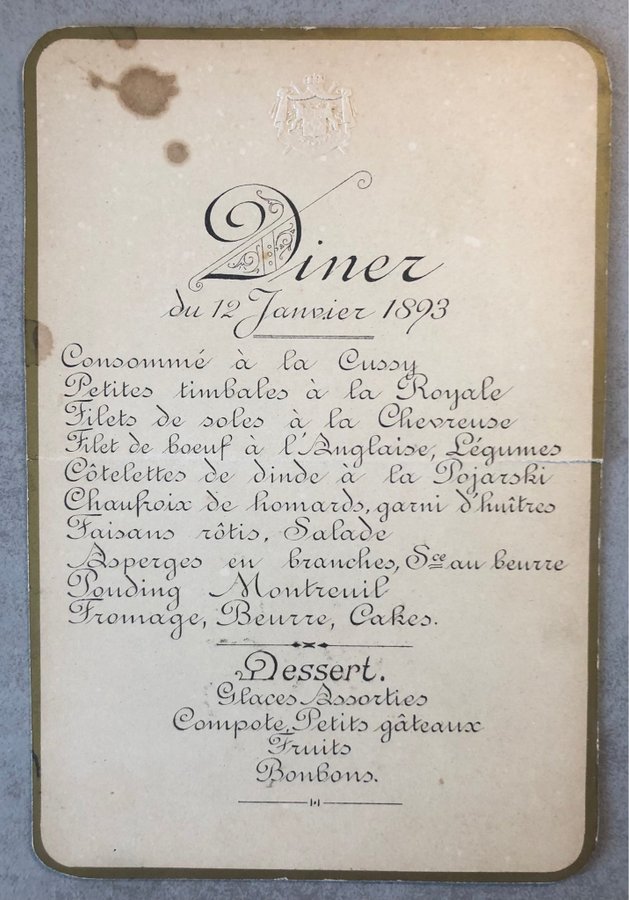 Diner
du 12 Janvier 1893
Consommé à la Cussy
Petites timbales à la Royale
Filets de soles à la Chevreuse
Filet de boeuf à l'Anglaise, Légumes
Côtelettes de dinde à la Pojarski
Chaufroix de homards, garni d'huîtres
Faisans rôtis, Salade
Asperges en branches, Sce au beurre
Pouding Montreuil
Fromage, Beurre, Cakes.
Dessert.
Glaces Assorties
Compote, Petits gâteaux
Fruits
Bonbons.